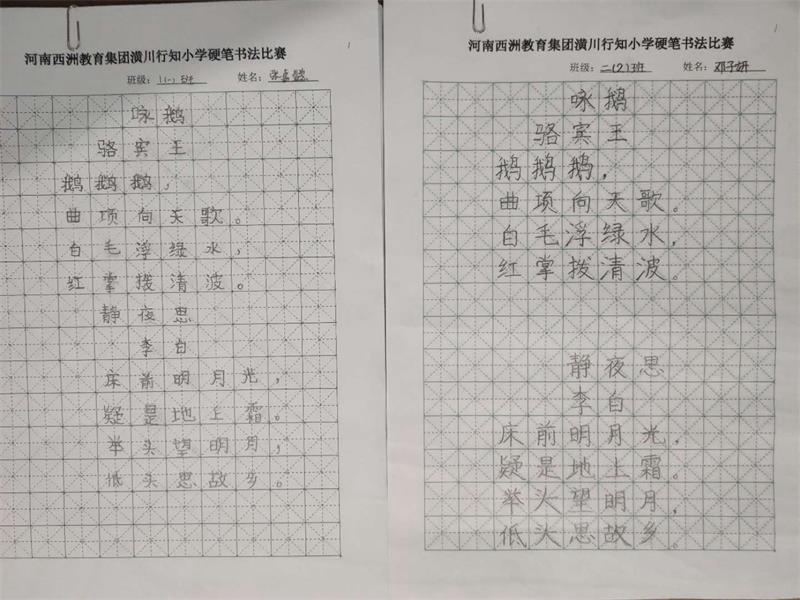 河南西洲教育集团潢川行知小学硬笔书法比赛
班级： 班 姓名：
咏鹅
骆宾王
鹅鹅鹅，
曲项向天歌。
白毛浮绿水，
红掌拨清波。
静夜思
李白
床前明月光，
疑是地上霜。
举头望明月，
低头思故乡。
河南西洲教育集团潢川行知小学硬笔书法比赛
班级：二(2)班 姓名：邓子妍
咏鹅
骆宾王
鹅鹅鹅，
曲项向天歌。
白毛浮绿水，
红掌拨清波。
静夜思
李白
床前明月光，
疑是地上霜。
举头望明月，
低头思故乡。